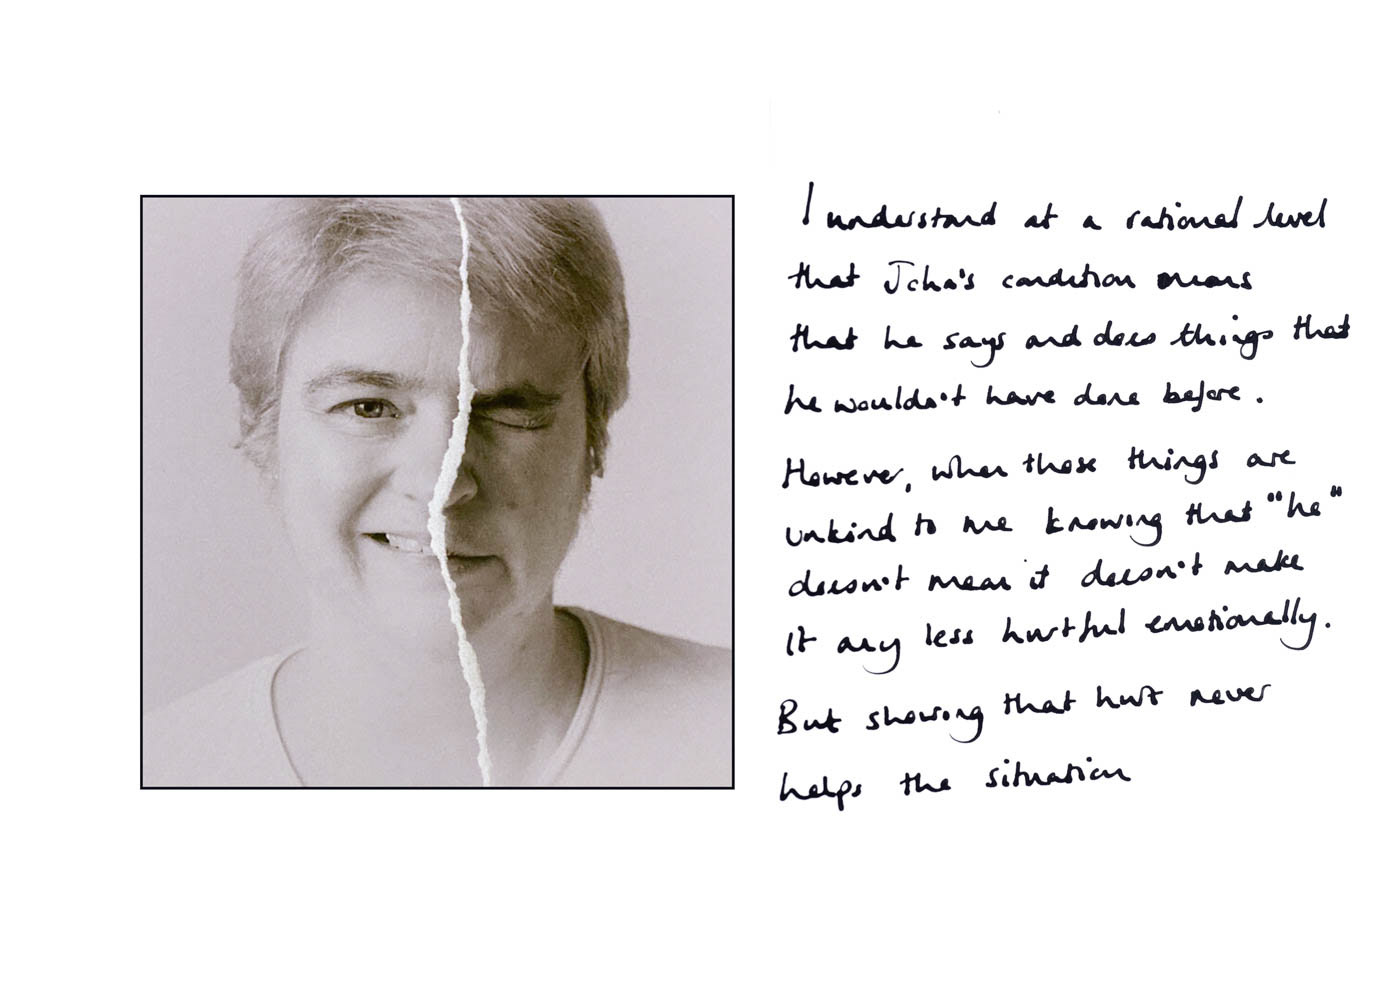 I understand at a rational level
that John's condition means
that he says and does things that
he wouldn't have done before.
However, when those things are
unkind to me knowing that "he"
doesn't mean it doesn't make
it any less hurtful emotionally.
But showing that hurt never
helps the situation